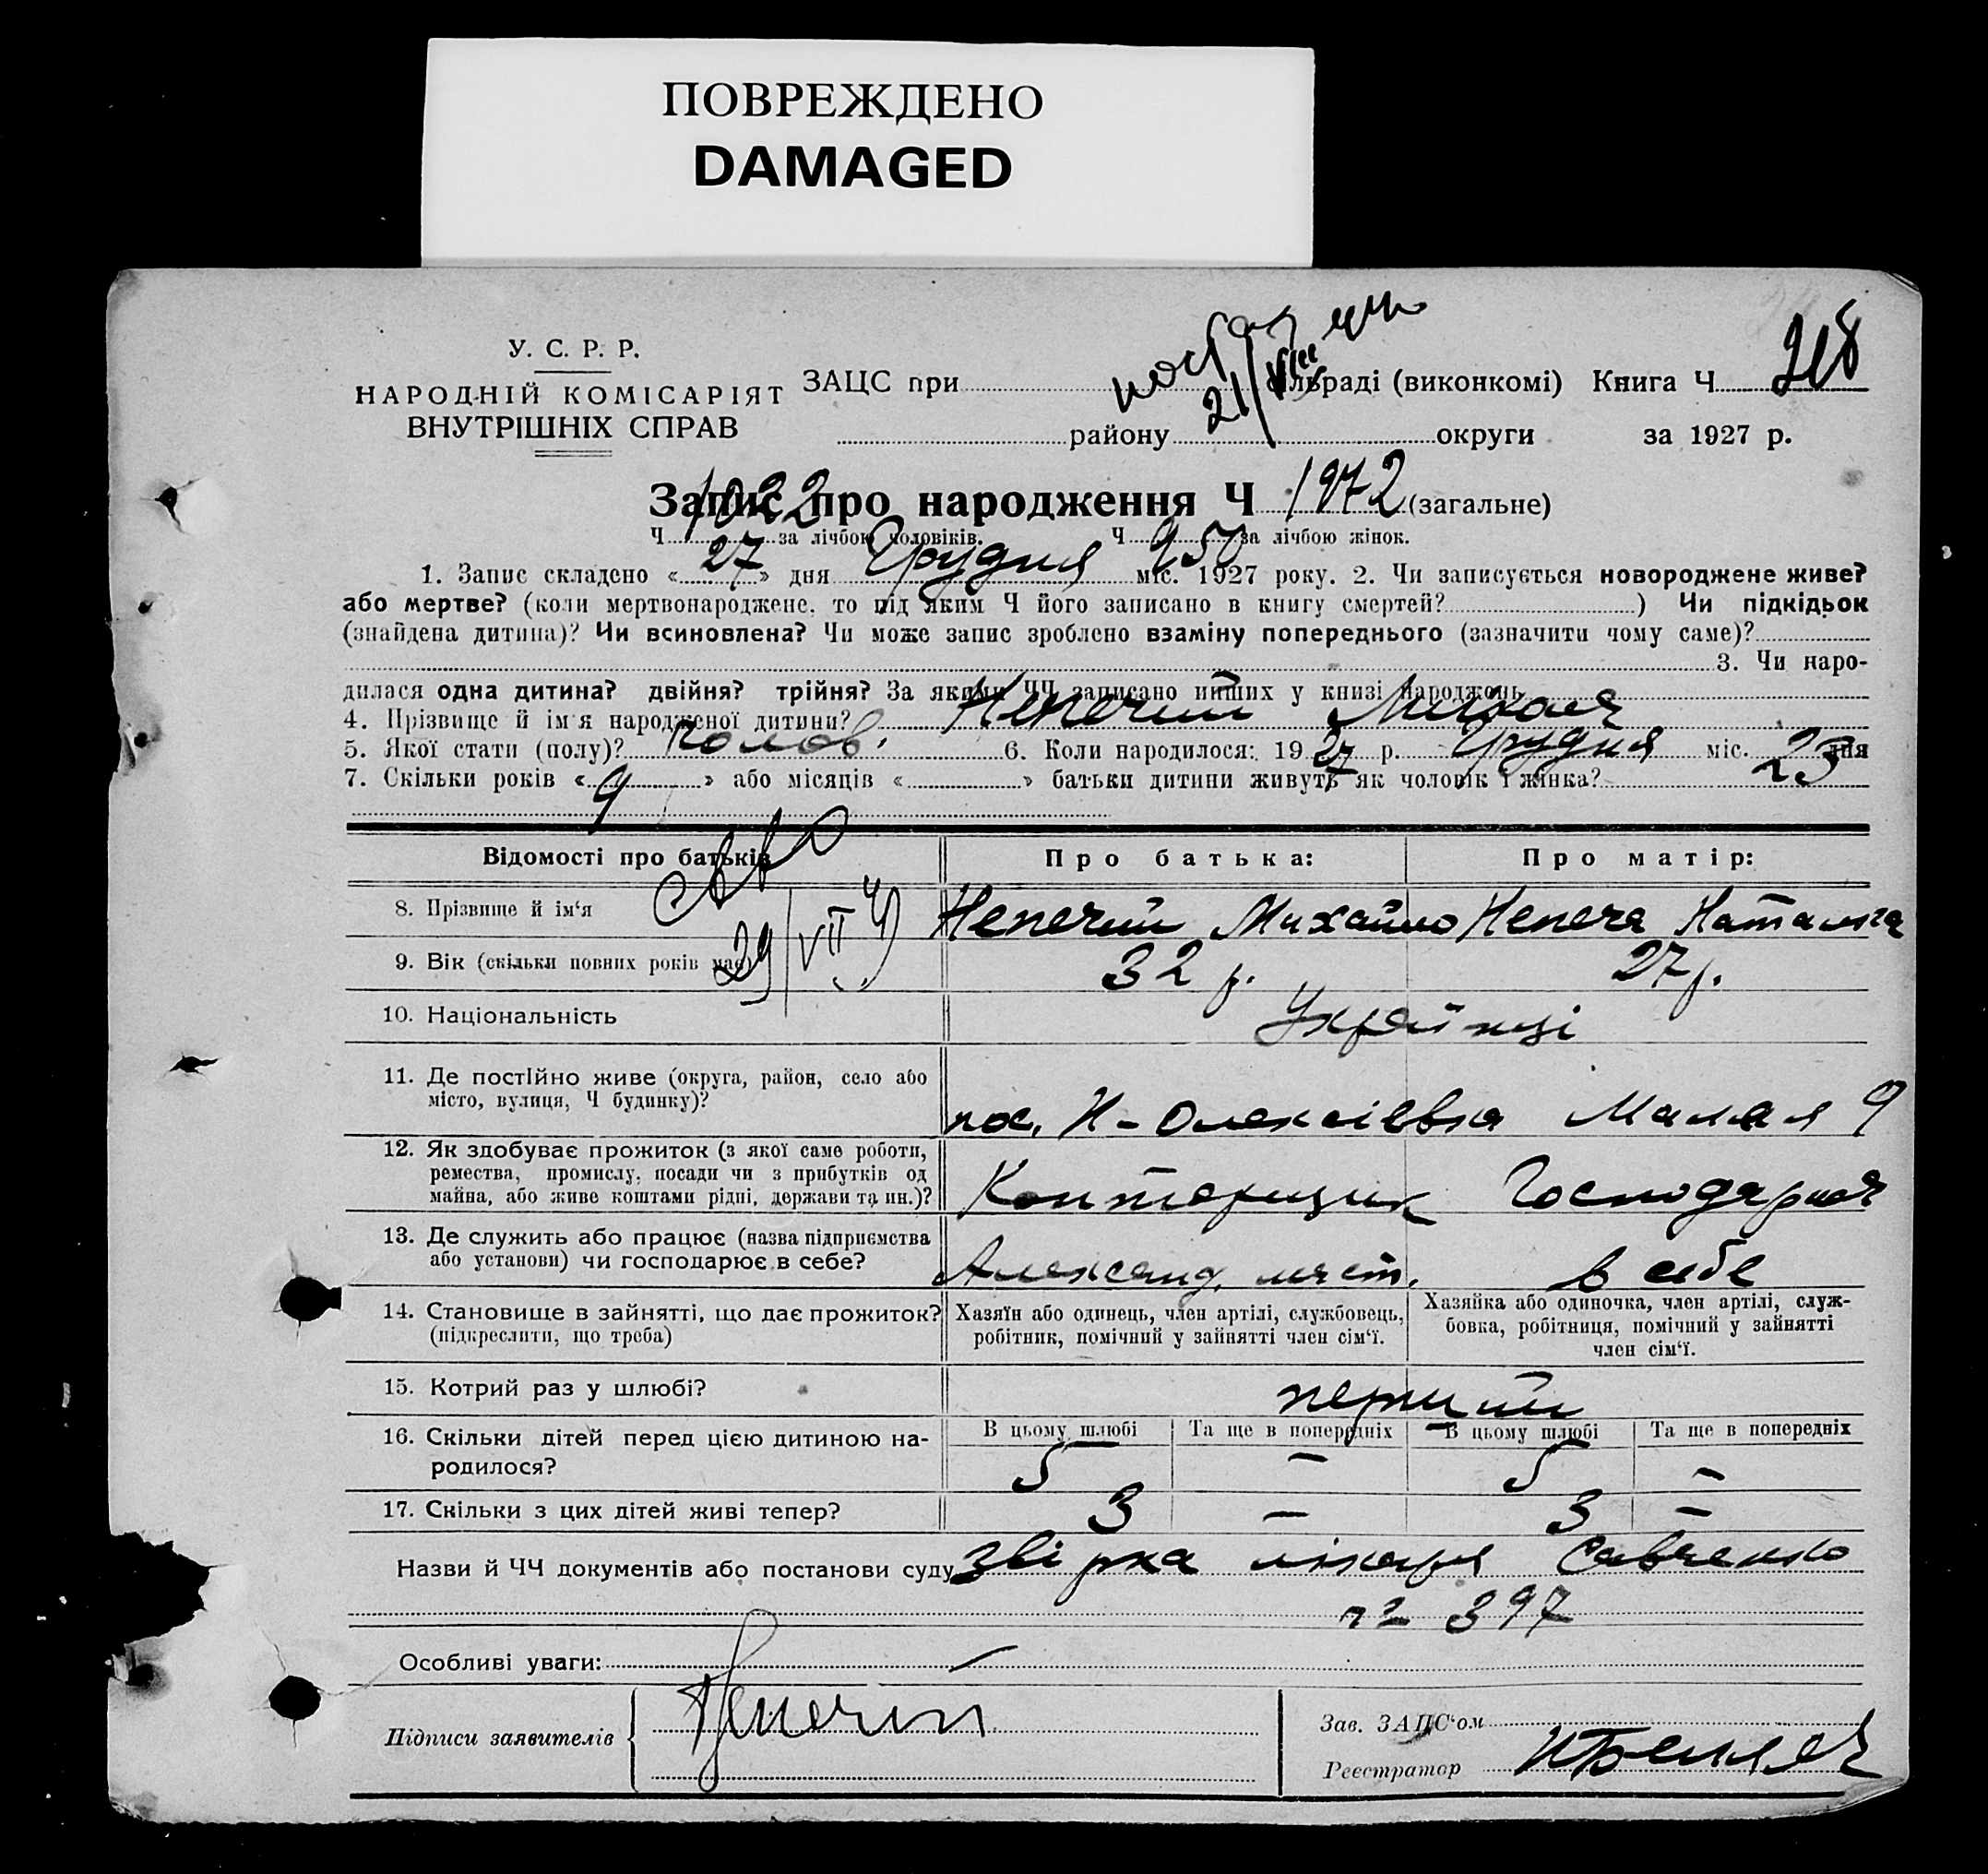 ПОВРЕЖДЕНО
DAMAGED
У. С. Р. Р.
НАРОДНІЙ КОМІСАРІЯТ
ВНУТРІШНІХ СПРАВ
ЗАЦС при сільраді (виконкомі) Книга Ч
21/VIII
району округи за 1927 р.
Запис про народження Ч 1972 (загальне)
Ч 1022 за лічбою чоловіків. Ч 950 за лічбою жінок.
1. Запис складено « 27 » дня Грудня міс. 1927 року. 2. Чи записується новороджене живе?
або мертве? (коли мертвонароджене, то під яким Ч його записано в книгу смертей? ) Чи підкідьок
(знайдена дитина)? Чи всиновлена? Чи може запис зроблено взаміну попереднього (зазначити чому саме)?
3. Чи наро-
дилася одна дитина? двійня? трійня? За якими ЧЧ записано инших у книзі народжень
4. Прізвище й ім'я народженої дитини? Непечий Микола
5. Якої стати (полу)? чолов. 6. Коли народилося: 1927 р. Грудня міс. 23 дня
7. Скільки років « 9 » або місяців « » батьки дитини живуть як чоловік і жінка?
Відомості про батьків Про батька: Про матір:
8. Прізвище й ім‘я Непечий Михайло Непеча Наталка
29/VII
9. Вік (скільки повних років має) 32 р. 27 р.
10. Національність Українці
11. Де постійно живе (округа, район, село або
місто, вулиця, Ч будинку)? пос. Н-Олексіевка Малая 9
12. Як здобуває прожиток (з якої саме роботи,
ремества, промислу, посади чи з прибутків од
майна, або живе коштами рідні, держави та ин.)? Конторщик Господарка
13. Де служить або працює (назва підприємства
або установи) чи господарює в себе? Александ. маст. в себе
14. Становище в зайнятті, що дає прожиток?
(підкреслити, що треба)
Хазяїн або одинець, член артілі, службовець,
робітник, помічний у зайнятті член сім‘ї.
Хазяйка або одиночка, член артілі, служ-
бовка, робітниця, помічний у зайнятті
член сім‘ї.
15. Котрий раз у шлюбі? перший
16. Скільки дітей перед цією дитиною на-
родилося?
В цьому шлюбі Та ще в попередніх В цьому шлюбі Та ще в попередніх
5 – 5 –
17. Скільки з цих дітей живі тепер? 3 – 3 –
Назви й ЧЧ документів або постанови суду звірка лікаря Савченко
№ 397
Особливі уваги: –
Підписи заявителів Непечий
Зав. ЗАЦС‘ом
Реєстратор